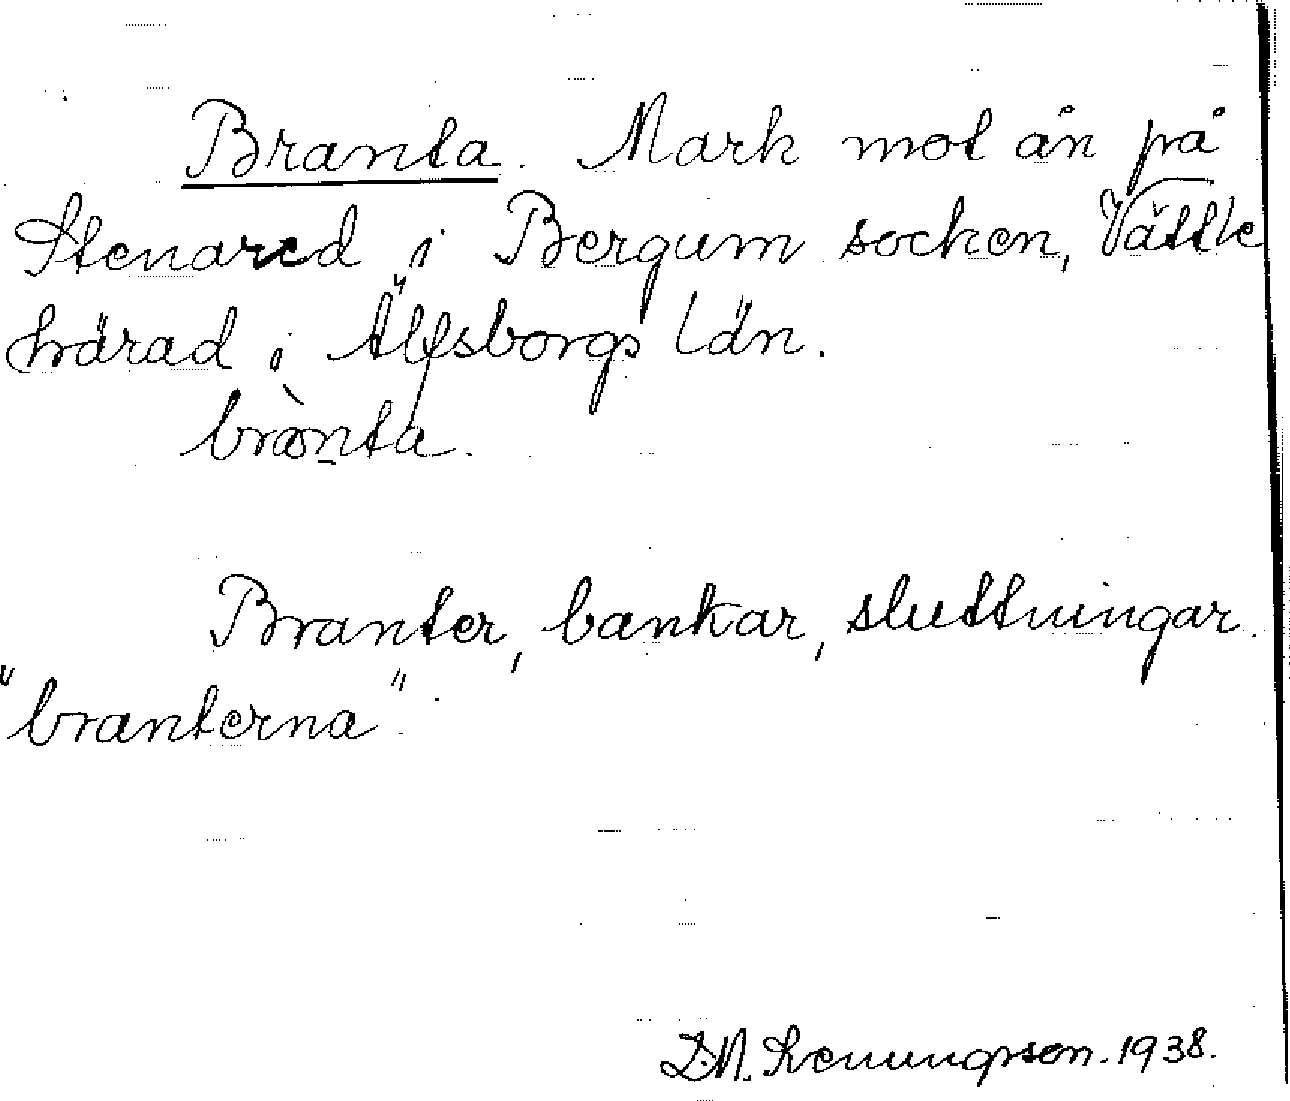 Branta. Mark mot ån på
Stenared i Bergum socken, Vättle
härad i Älfsborgs län.
brànta.
Branter, bankar, sluttningar.
"branterna".
1938.